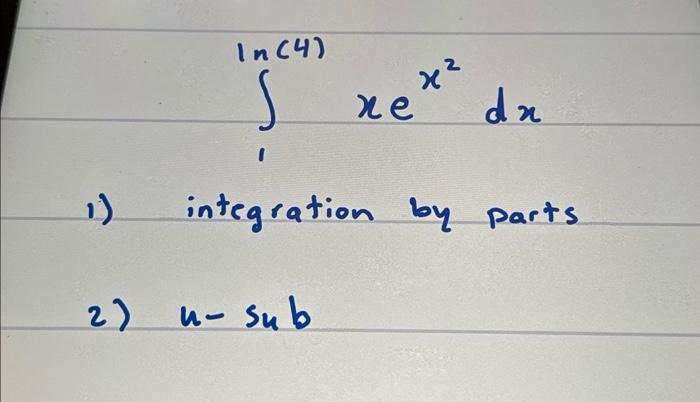 ln(4)
∫ xe^x² dx
1
1) integration by parts
2) u-sub